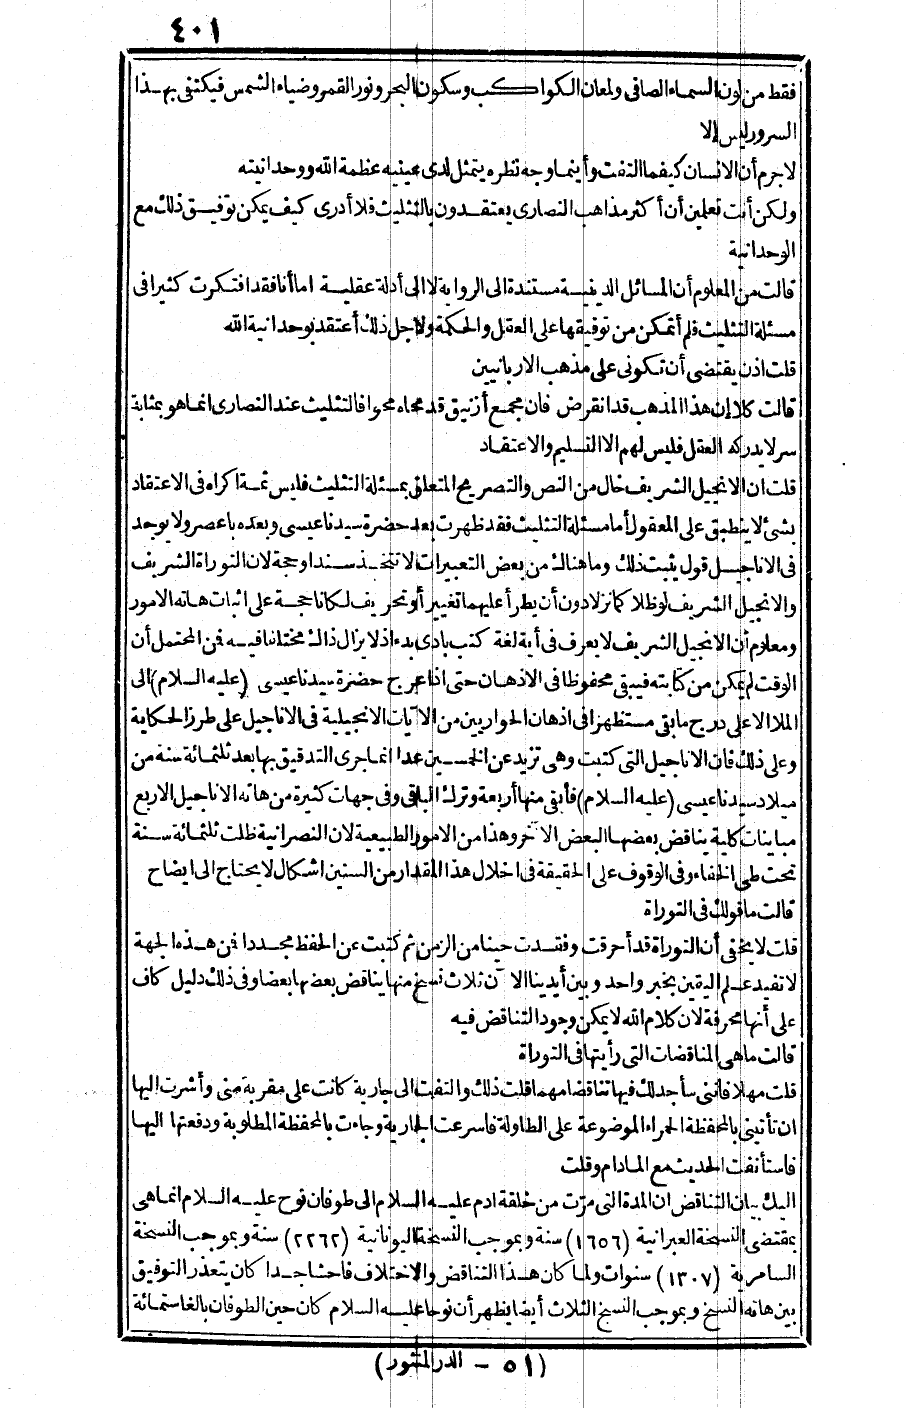 ٤٠١
فقط من لون السماء الصافى ولمعان الكواكب وسكون البحر ونور القمر وضياء الشمس فيكتفى بهذا
السرور ليس إلا
لا جرم أن الانسان كيفما التفت وأينما وجه نظره يتمثل لدى عينيه عظمة الله ووحدانيته
ولكن أنت تعلمين أن أكثر مذاهب النصارى يعتقدون بالتثليث فلا أدرى كيف يمكن توفيق ذلك مع
الوحدانية
قالت من المعلوم أن المسائل الدينية مستندة الى الرواية لا الى أدلة عقلية اما أنا فقد افتكرت كثيرا فى
مسئلة التثليث فلم أتمكن من توفيقها على العقل والحكمة ولاجل ذلك أعتقد بوحدانية الله
قلت اذن يقتضى أن تكونى على مذهب الاريانيين
قالت كلا إن هذا المذهب قد انقرض فان مجمع أزنيق قد محاه محوا فالتثليث عند النصارى انما هو بمثابة
سر لا يدركه العقل فليس لهم الا التسليم والاعتقاد
قلت ان الانجيل الشريف خال من النص والتصريح المتعلق بمسئلة التثليث فليس ثمة اكراه فى الاعتقاد
بشئ لا ينطبق على المعقول أما مسئلة التثليث فقد ظهرت بعد حضرة سيدنا عيسى وبعده باعصر ولا يوجد
فى الاناجيل قول يثبت ذلك وما هنالك من بعض التعبيرات لا تتخذ سندا وحجة لان التوراة الشريف
والانجيل الشريف لو ظلا كما نزلا دون أن يطرأ عليهما تغيير أو تحريف لكانا حجة على اثبات هاته الامور
ومعلوم أن الانجيل الشريف لا يعرف فى أية لغة كتب بادى بدء اذ لا يزال ذلك مختلفا فيه فمن المحتمل أن
الوقت لم يمكن من كتابته فبقى محفوظا فى الاذهان حتى اذا عرج حضرة سيدنا عيسى (عليه السلام) الى
الملا الاعلى درج ما بقى مستظهرا فى اذهان الحواريين من الآيات الانجيلية فى الاناجيل على طرز الحكاية
وعلى ذلك فان الاناجيل التى كتبت وهى تزيد عن الخمسين عدا انما جرى التدقيق بها بعد ثلثمائة سنة من
ميلاد سيدنا عيسى (عليه السلام) فأبقى منها أربعة وترك الباقى وفى جهات كثيرة من هاته الاناجيل الاربع
مباينات كلية يناقض بعضها البعض الآخر وهذا من الامور الطبيعية لان النصرانية ظلت ثلثمائة سنة
تحت طى الخفاء وفى الوقوف على الحقيقة فى اخلال هذا المقدار من السنين اشكال لا يحتاج الى ايضاح
قالت ما قولك فى التوراة
قلت لا يخفى أن التوراة قد أحرقت وفقدت حينا من الزمن ثم كتبت عن الحفظ مجددا فمن هذه الجهة
لا تفيد علم اليقين بخبر واحد وبين أيدينا الآن ثلاث نسخ منها يناقض بعضها بعضا وفى ذلك دليل كاف
على أنها محرفة لان كلام الله لا يمكن وجود التناقض فيه
قالت ما هى المناقضات التى رأيتها فى التوراة
قلت مهلا فأننى سأجد لك فيها تناقضا مهما قلت ذلك والتفت الى جارية كانت على مقربة منى وأشرت اليها
ان تأتينى بالمحفظة الحمراء الموضوعة على الطاولة فاسرعت الجارية وجاءت بالمحفظة المطلوبة ودفعتها اليها
فاستأنفت الحديث مع المادام وقلت
اليك بيان التناقض ان المدة التى مرّت من خلقة ادم عليه السلام الى طوفان نوح عليه السلام انما هى
بمقتضى النسخة العبرانية (١٦٥٦) سنة وبموجب النسخة اليونانية (٢٢٦٢) سنة وبموجب النسخة
السامرية (١٣٠٧) سنوات ولما كان هذا التناقض والاختلاف فاحشا جدا كان يتعذر التوفيق
بين هاته النسخ وبموجب النسخ الثلاث أيضا يظهر أن نوحا عليه السلام كان حين الطوفان بالغا ستمائة
(٥١ - الدر المنثور)